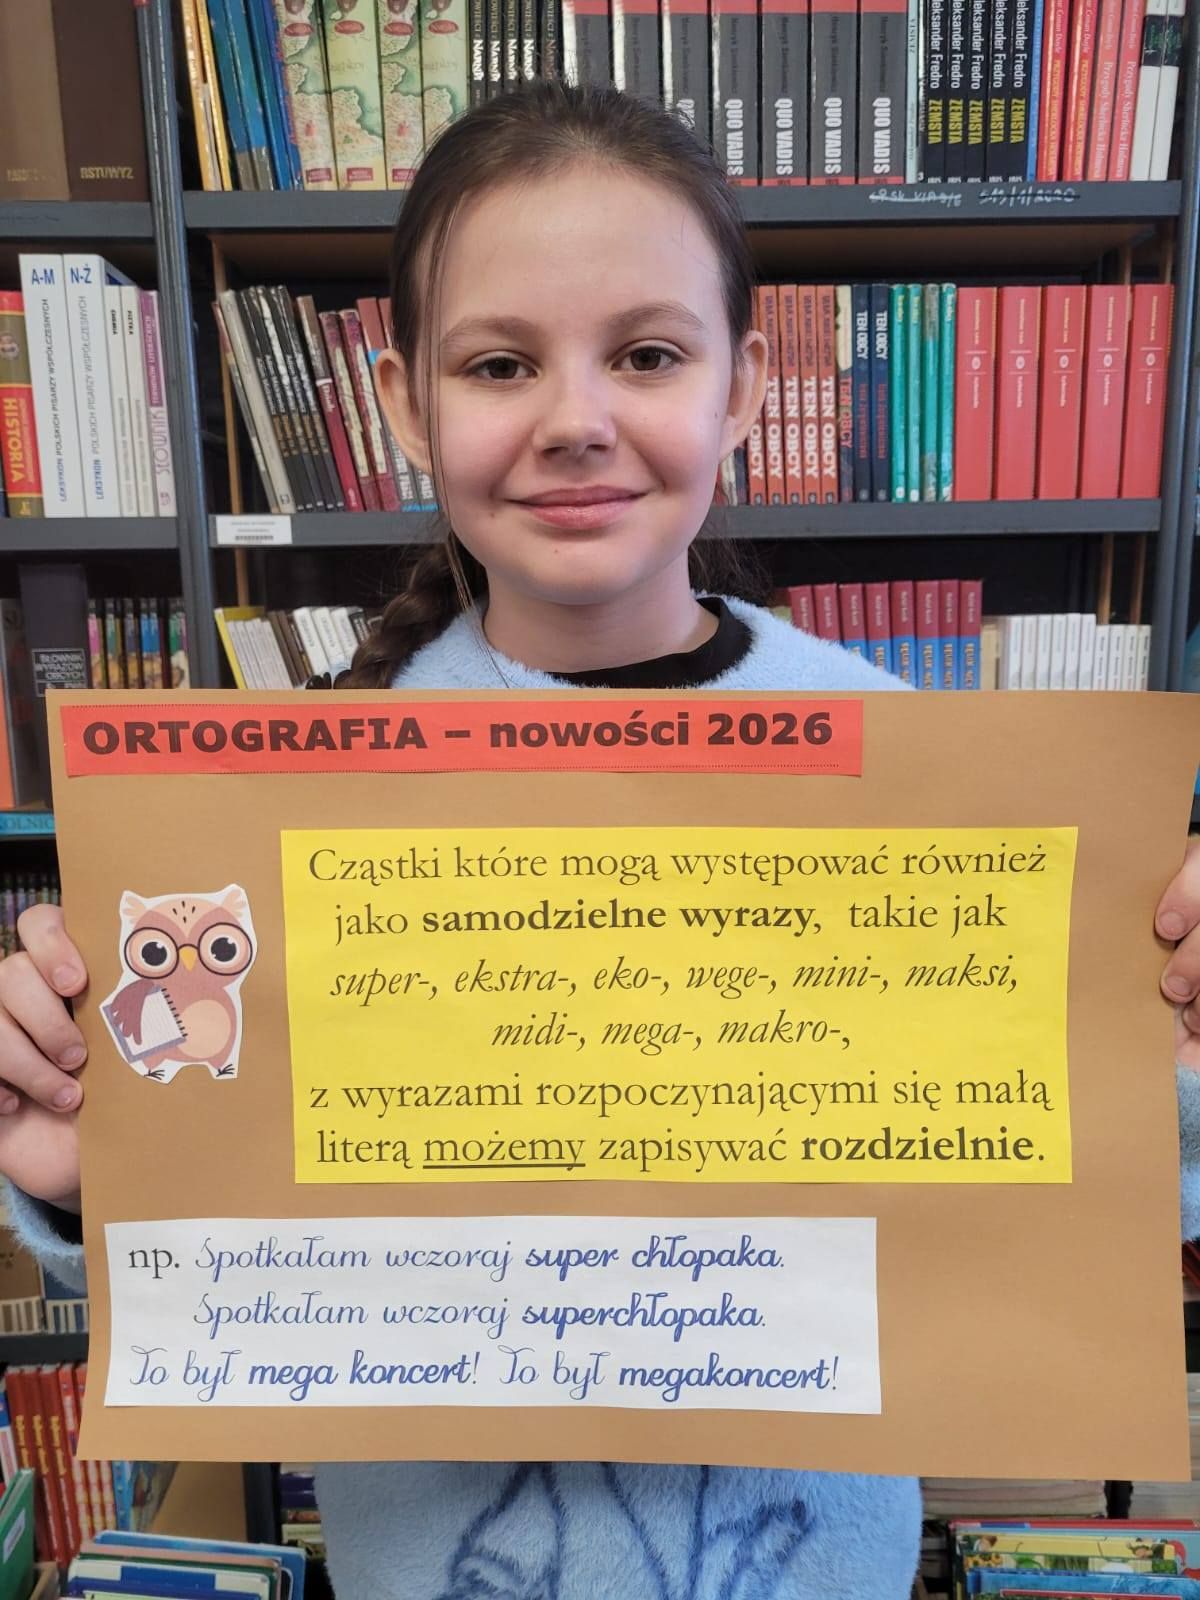 QUO VADIS
QUO VADIS
QUO VADIS
QUO VADIS
Aleksander Fredro ZEMSTA
Aleksander Fredro ZEMSTA
Aleksander Fredro ZEMSTA
A-M
N-Ż
LEKSYKON POLSKICH PISARZY WSPÓŁCZESNYCH
LEKSYKON POLSKICH PISARZY WSPÓŁCZESNYCH
HISTORIA
TEN OBCY
TEN OBCY
TEN OBCY
TEN OBCY
TEN OBCY
SŁOWNIK
WYRAZÓW
OBCYCH
ORTOGRAFIA – nowości 2026
Cząstki które mogą występować również
jako samodzielne wyrazy, takie jak
super-, ekstra-, eko-, wege-, mini-, maksi,
midi-, mega-, makro-,
z wyrazami rozpoczynającymi się małą
literą możemy zapisywać rozdzielnie.
np. Spotkałam wczoraj super chłopaka.
Spotkałam wczoraj superchłopaka.
To był mega koncert! To był megakoncert!